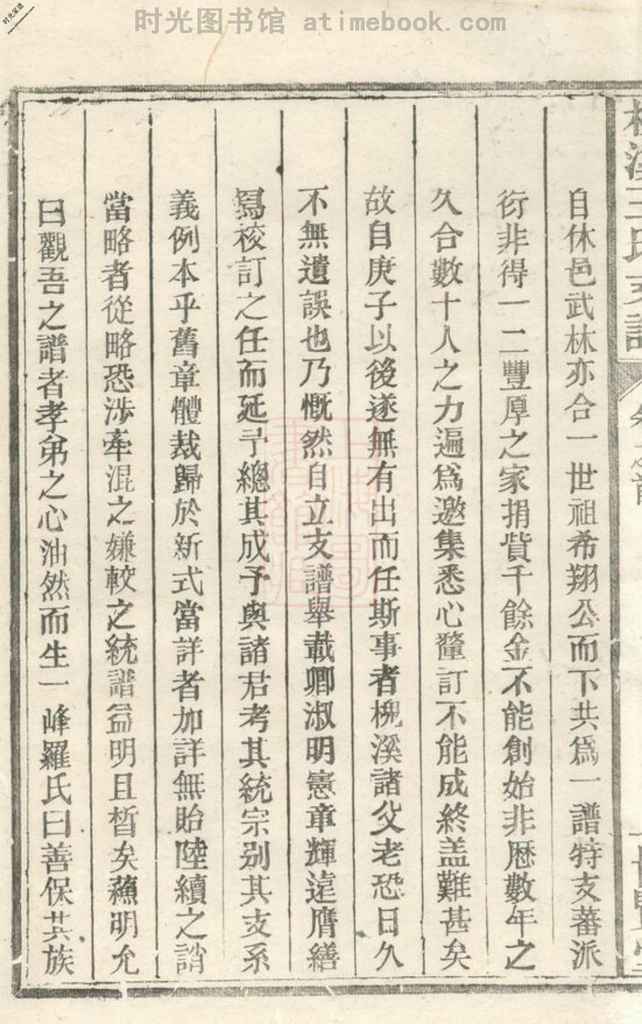 时光图书馆 atimebook.com
自休邑武林亦合一世祖希翔公而下共爲一譜特支蕃派
衍非得一二豐厚之家捐貲千餘金不能創始非歴數年之
久合數十人之力遍爲邀集悉心釐訂不能成終盖難甚矣
故自庚子以後遂無有出而任斯事者槐溪諸父老恐日久
不無遺誤也乃慨然自立支譜舉載卿淑明憲章輝遠膺繕
寫校訂之任而延予總其成予與諸君考其統宗别其支系
義例本乎舊章體裁歸於新式當詳者加詳無貽陸續之誚
當略者從略恐涉牽混之嫌較之統譜益明且晳矣蘓明允
曰觀吾之譜者孝弟之心油然而生一峰羅氏曰善保其族